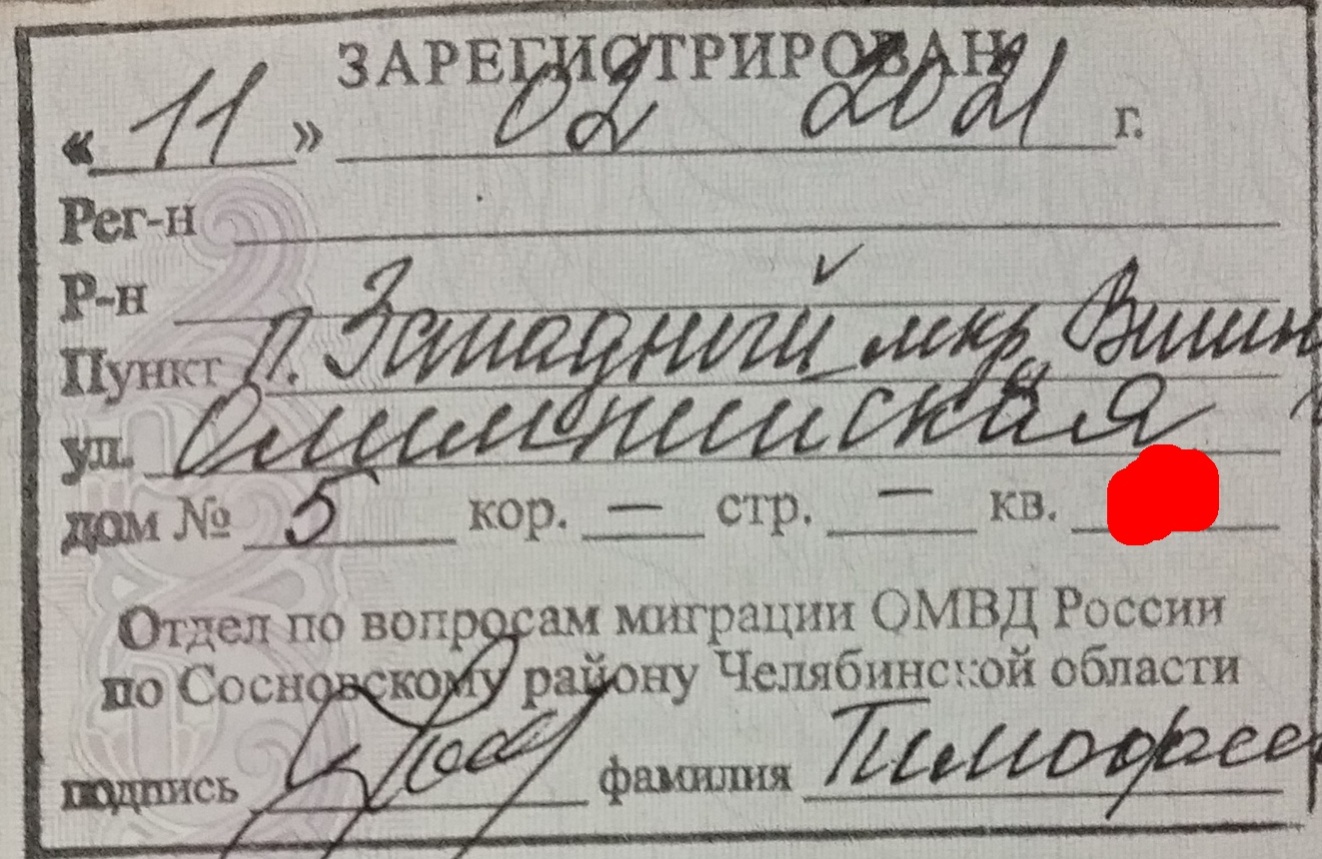 ЗАРЕГИСТРИРОВАН
«11» 02 2021 г.
Рег-н
Р-н
Пункт п. Западный мкр. Вишн
ул. Олимпийская
дом № 5 кор. — стр. — кв.
Отдел по вопросам миграции ОМВД России
по Сосновскому району Челябинской области
подпись фамилия Тимофее